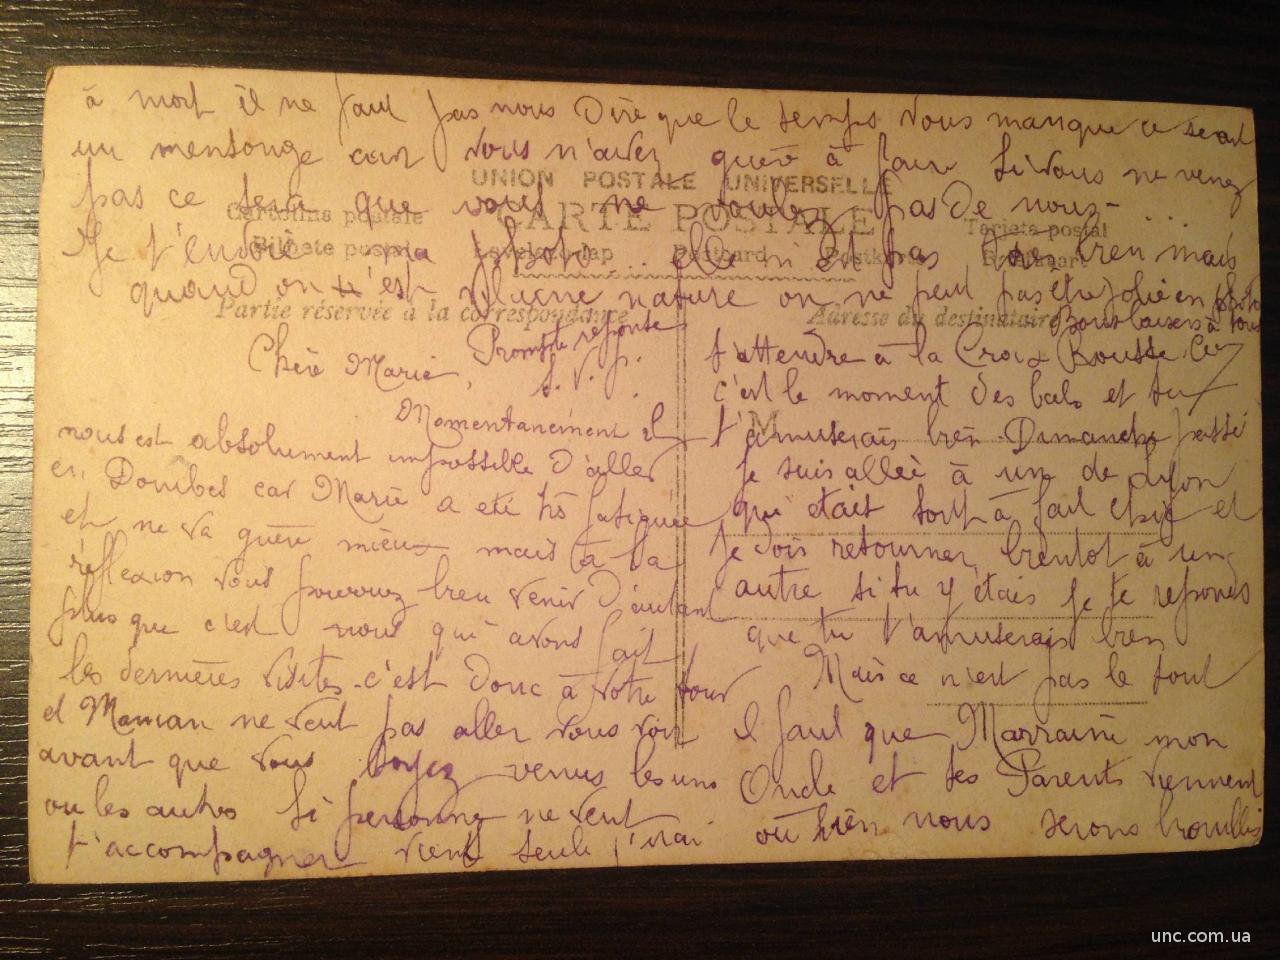 à mort il ne faut pas nous dire que le temps vous manque ce serait
un mensonge car vous n'avez guère à faire si vous ne venez
pas ce sera que vous ne voulez pas de nous -
UNION POSTALE UNIVERSELLE
CARTE POSTALE
Cartolina postale
Tarjeta postal
Bilhete postal Levelezö-lap Postcard Postkarte
Je t'envoie ma elle n'est pas bien mais
quand on n'est nature on ne peut pas être jolie en photo
Partie réservée à la correspondance
Adresse du destinataire
Bons baisers à tous
Prompte réponse
S. V. p.
Chère Marie,
Momentanément il
nous est absolument impossible d'aller
en Dombes car Marie a été très fatiguée
et ne va guère mieux mais à la
réflexion vous pourrez bien venir d'autant
plus que c'est nous qui avons fait
les dernières visites c'est donc à votre tour
et Maman ne veut pas aller vous voir
avant que vous soyez venus les uns
ou les autres si personne ne veut
t'accompagner viens seule j'irai
t'attendre à la Croix Rousse.
c'est le moment des bals et tu
M
t'amuserais bien Dimanche passé
je suis allée à un de Lyon
qui était tout à fait chic et
je dois retourner bientôt à un
autre si tu y étais je te réponds
que tu t'amuserais bien
Mais ce n'est pas le tout
il faut que Marraine mon
Oncle et tes Parents viennent
ou bien nous serons brouillés
unc.com.ua